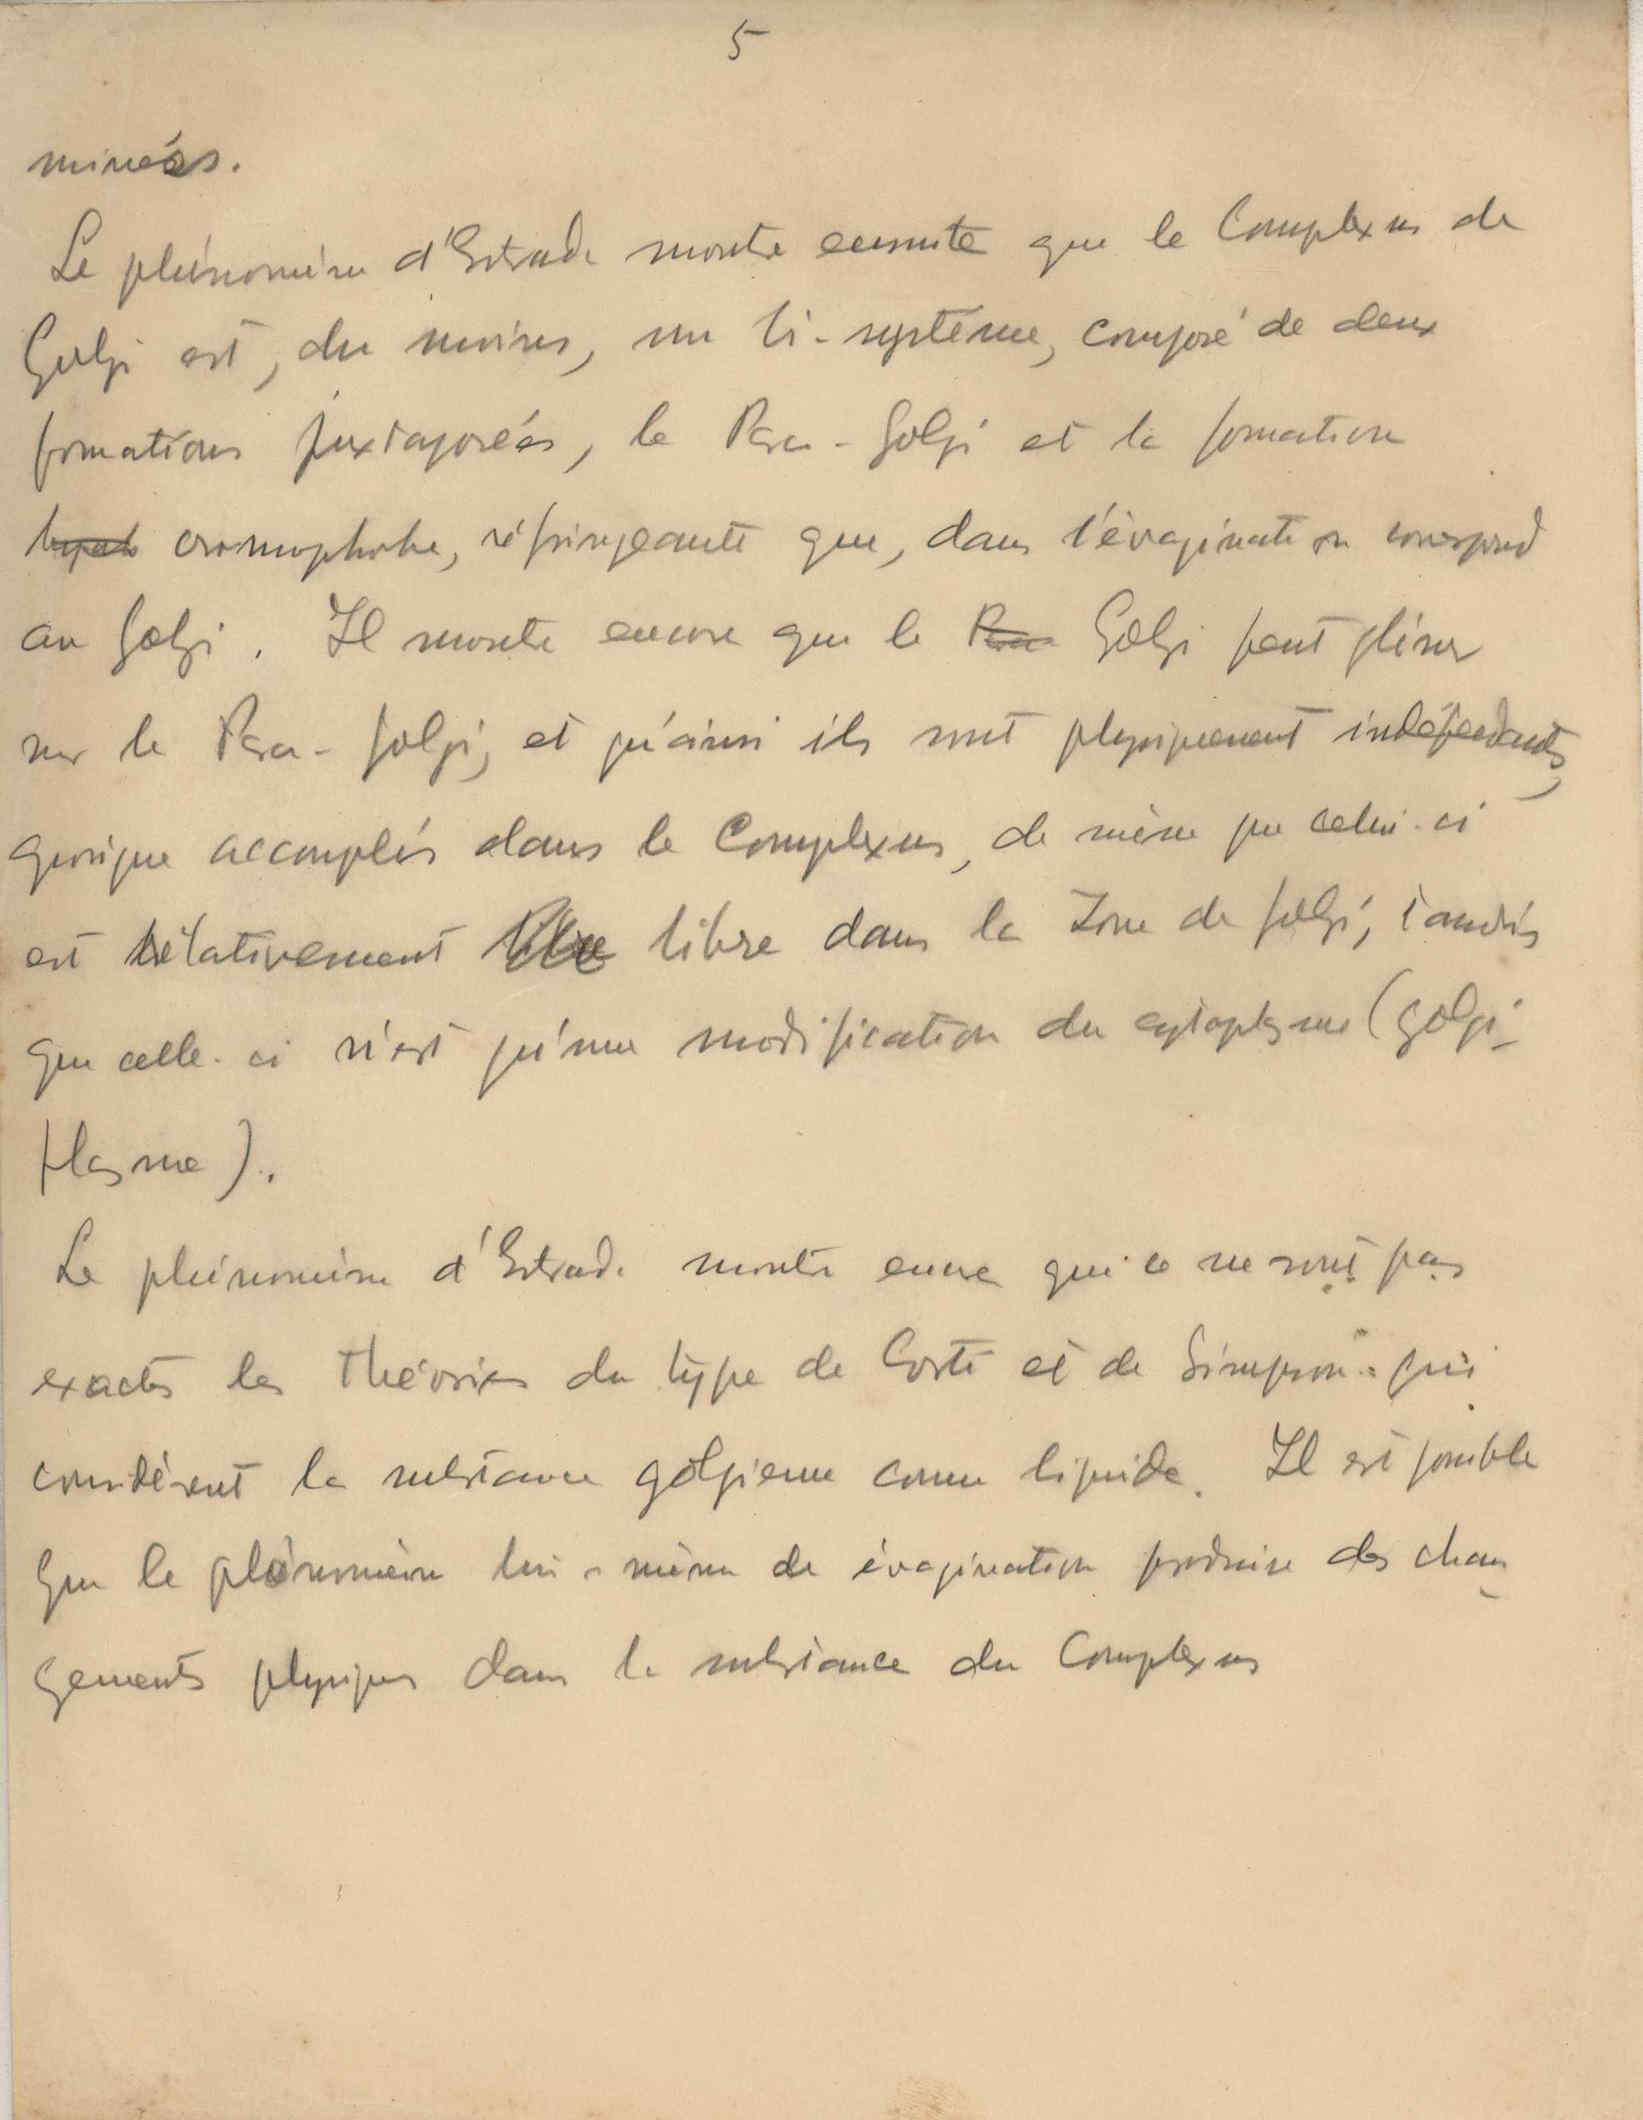 5
minées.
Le phénomène d'Estrada montre ensuite que le Complexus de
Golgi est, du moins, un bi-système, composé de deux
formations juxtaposées, le Para-Golgi et la formation
cromophobe, réfringeante que, dans l'évagination correspond
au Golgi. Il montre encore que le Golgi peut gliser
sur le Para-Golgi, et qu'ainsi ils sont physiquement indépendants,
quoique accouplés dans le Complexus, de même que celui-ci
est rélativement libre dans la Zone de Golgi, tandis
que celle-ci n'est qu'une modification du cytoplasme (golgi-
plasme).
Le phénomène d'Estrada montre encore que ce ne sont pas
exactes les théories du type de Corti et de Simpson qui
considèrent la substance golgienne comme liquide. Il est possible
que le phénomène lui-même de évagination produise des chan
gements physiques dans la substance du Complexus